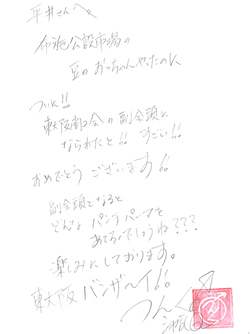 平井さんへ
布施公設市場の
豆のおっちゃんやったのに
ついに!!
東大阪商工会の副会頭に
なられたと!! すごい!!
おめでとうございます!!
副会頭となると
どんなパンチパーマを
あてるのでしょうね???
楽しみにしております。
東大阪バンザーイ!!
つんく♂